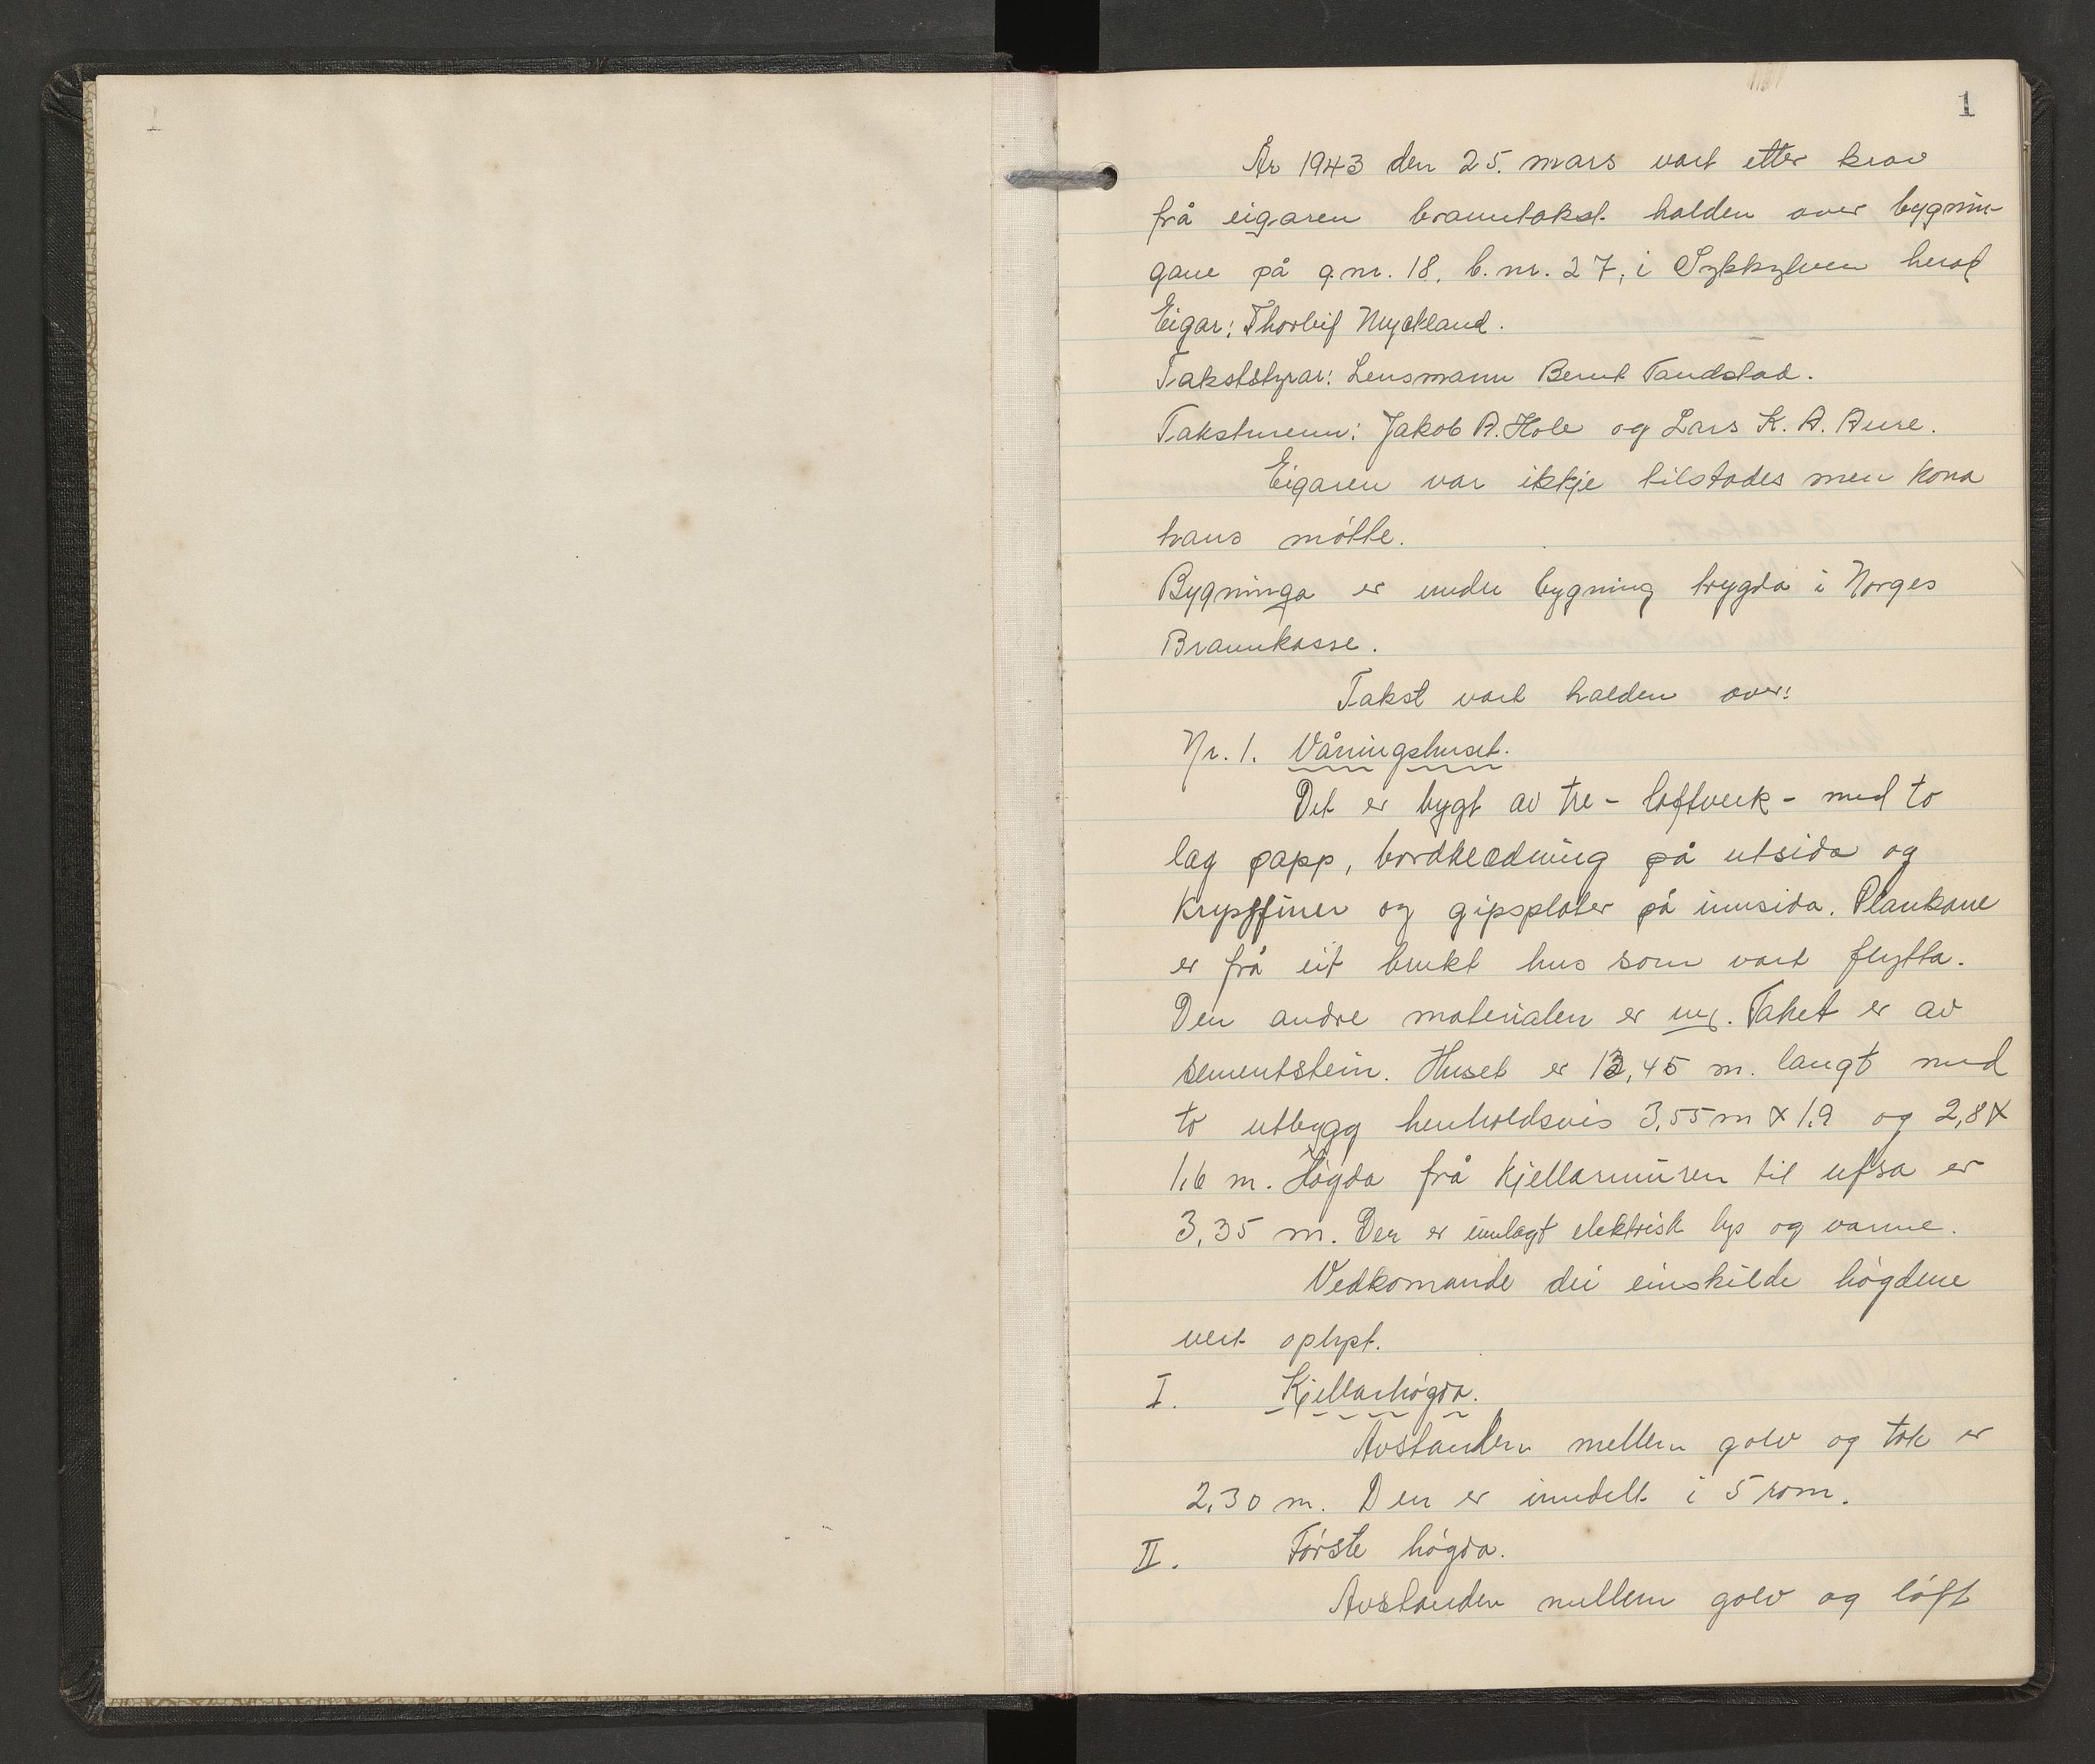 1
År 1943 den 25. mars vart etter krav
frå eigaren branntakst halden over bygnin-
gane på g.nr. 18, b.nr. 27, i Sykkylven herad
Eigar: Thorleif Myckland.
Takststyrar: Lensmann Bernt Tandstad.
Takstmenn: Jakob A. Hole og Lars K. A. Aure.
Eigaren var ikkje tilstades men kona
hans møtte.
Bygninga er under bygning trygda i Norges
Brannkasse.
Takst vart halden over:
Nr. 1. Våningshuset.
Det er bygt av tre - loftverk - med to
lag papp, bordklædning på utsida og
Krysffiner og gipsplater på innsida. Plankane
er frå eit brukt hus som vart flytta.
Den andre materialen er ny. Taket er av
sementstein. Huset er 13,45 m. langt med
to utbygg henholdsvis 3,55 m x 1,9 og 2,8 x
1,6 m. Høgda frå kjellarmuren til ufsa er
3,35 m. Der er innlagt elektrisk lys og varme.
Vedkomande dei einskilde høgdene
vert oplyst.
I. Kjellarhøgda.
Avstanden mellem golv og tak er
2,30 m. Den er inndelt i 5 rom.
II. Første høgda.
Avstanden mellem golv og loft